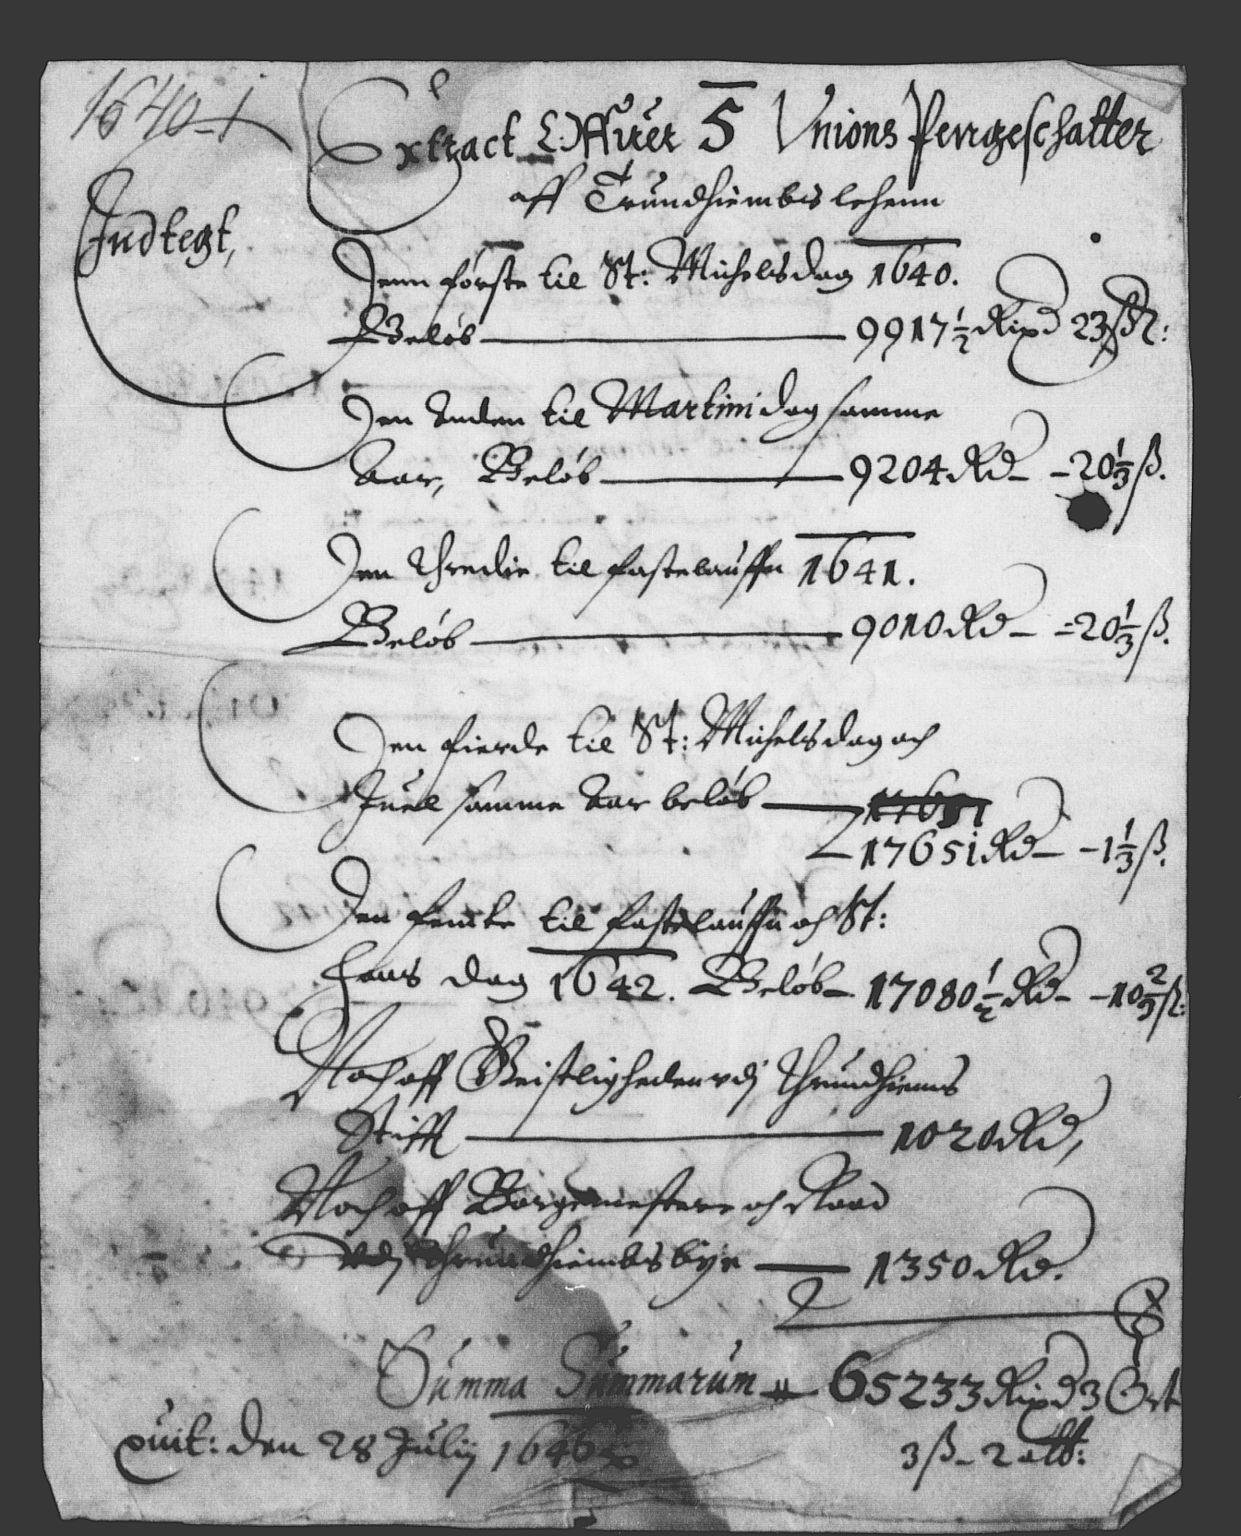 1640-1
Extract Offuer 5 Unions Penngeschatter
aff Trundhiembs lehenn
Indtegt,
Denn første til St: Michelsdag 1640.
Beløb 9917 1/2 Rixd 23 ß
Den Anden til Martini dag samme
Aar, Beløb 9204 Rd - 20 1/3 ß.
Den Thredie til fastelauffn 1641.
Beløb 9010 Rd - 20 1/3 ß.
Den fierde til St: Michelsdag och
Juel samme Aar beløb
17651 Rd - 1 1/3 ß.
Den femte til fastelauffn och St:
Hans dag 1642. Beløb 17080 1/2 Rd - 10 2/3 ß.
Noch aff Geistligheden vdj Thrundhiems
Stifft 1020 Rd,
Noch aff Borgemestere och Raad
vdj Thrundhiembs bye 1350 Rd.
Summa Summarum 65233 Rixd 3 Ort
3 ß - 2 alb:
quit: den 28 Julij